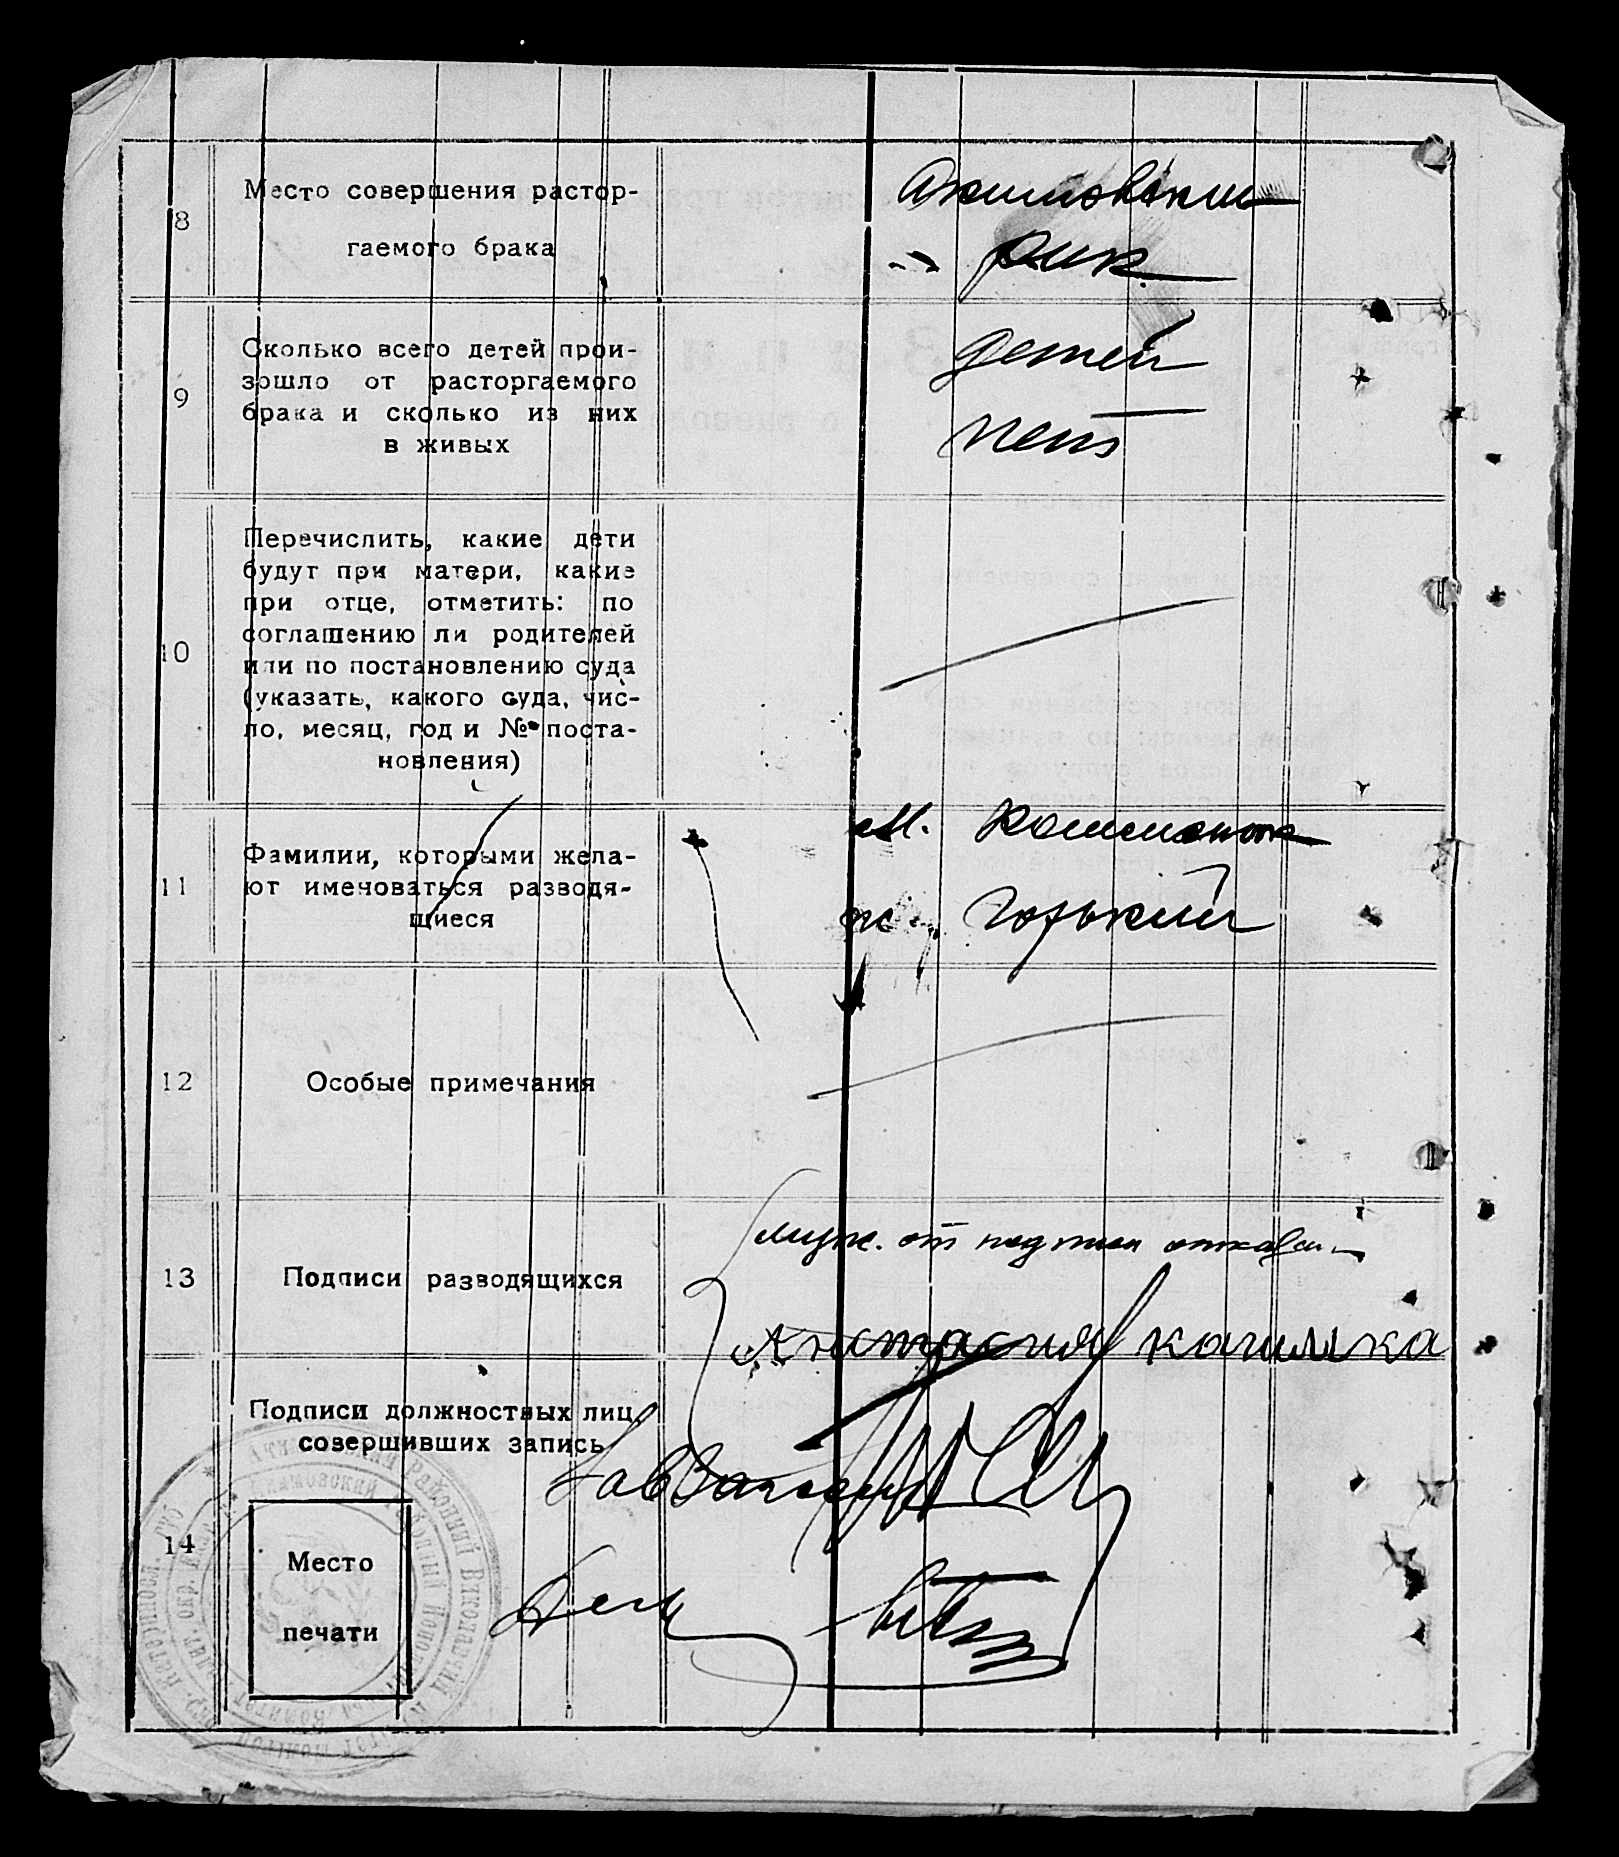 8
Место совершения растор-
гаемого брака
рик
9
Сколько всего детей прои-
зошло от расторгаемого
брака и сколько из них
в живых
детей
нет
10
Перечислить, какие дети
будут при матери, какие
при отце, отметить: по
соглашению ли родителей
или по постановлению суда
(указать, какого суда, чис-
ло, месяц, год и № поста-
новления)
11
Фамилии, которыми жела-
ют именоваться разводя-
щиеся
м.
ж. Горький
12
Особые примечания
13
Подписи разводящихся
муж. от подписи
Анастасия
14
Подписи должностных лиц
совершивших запись
Место
печати